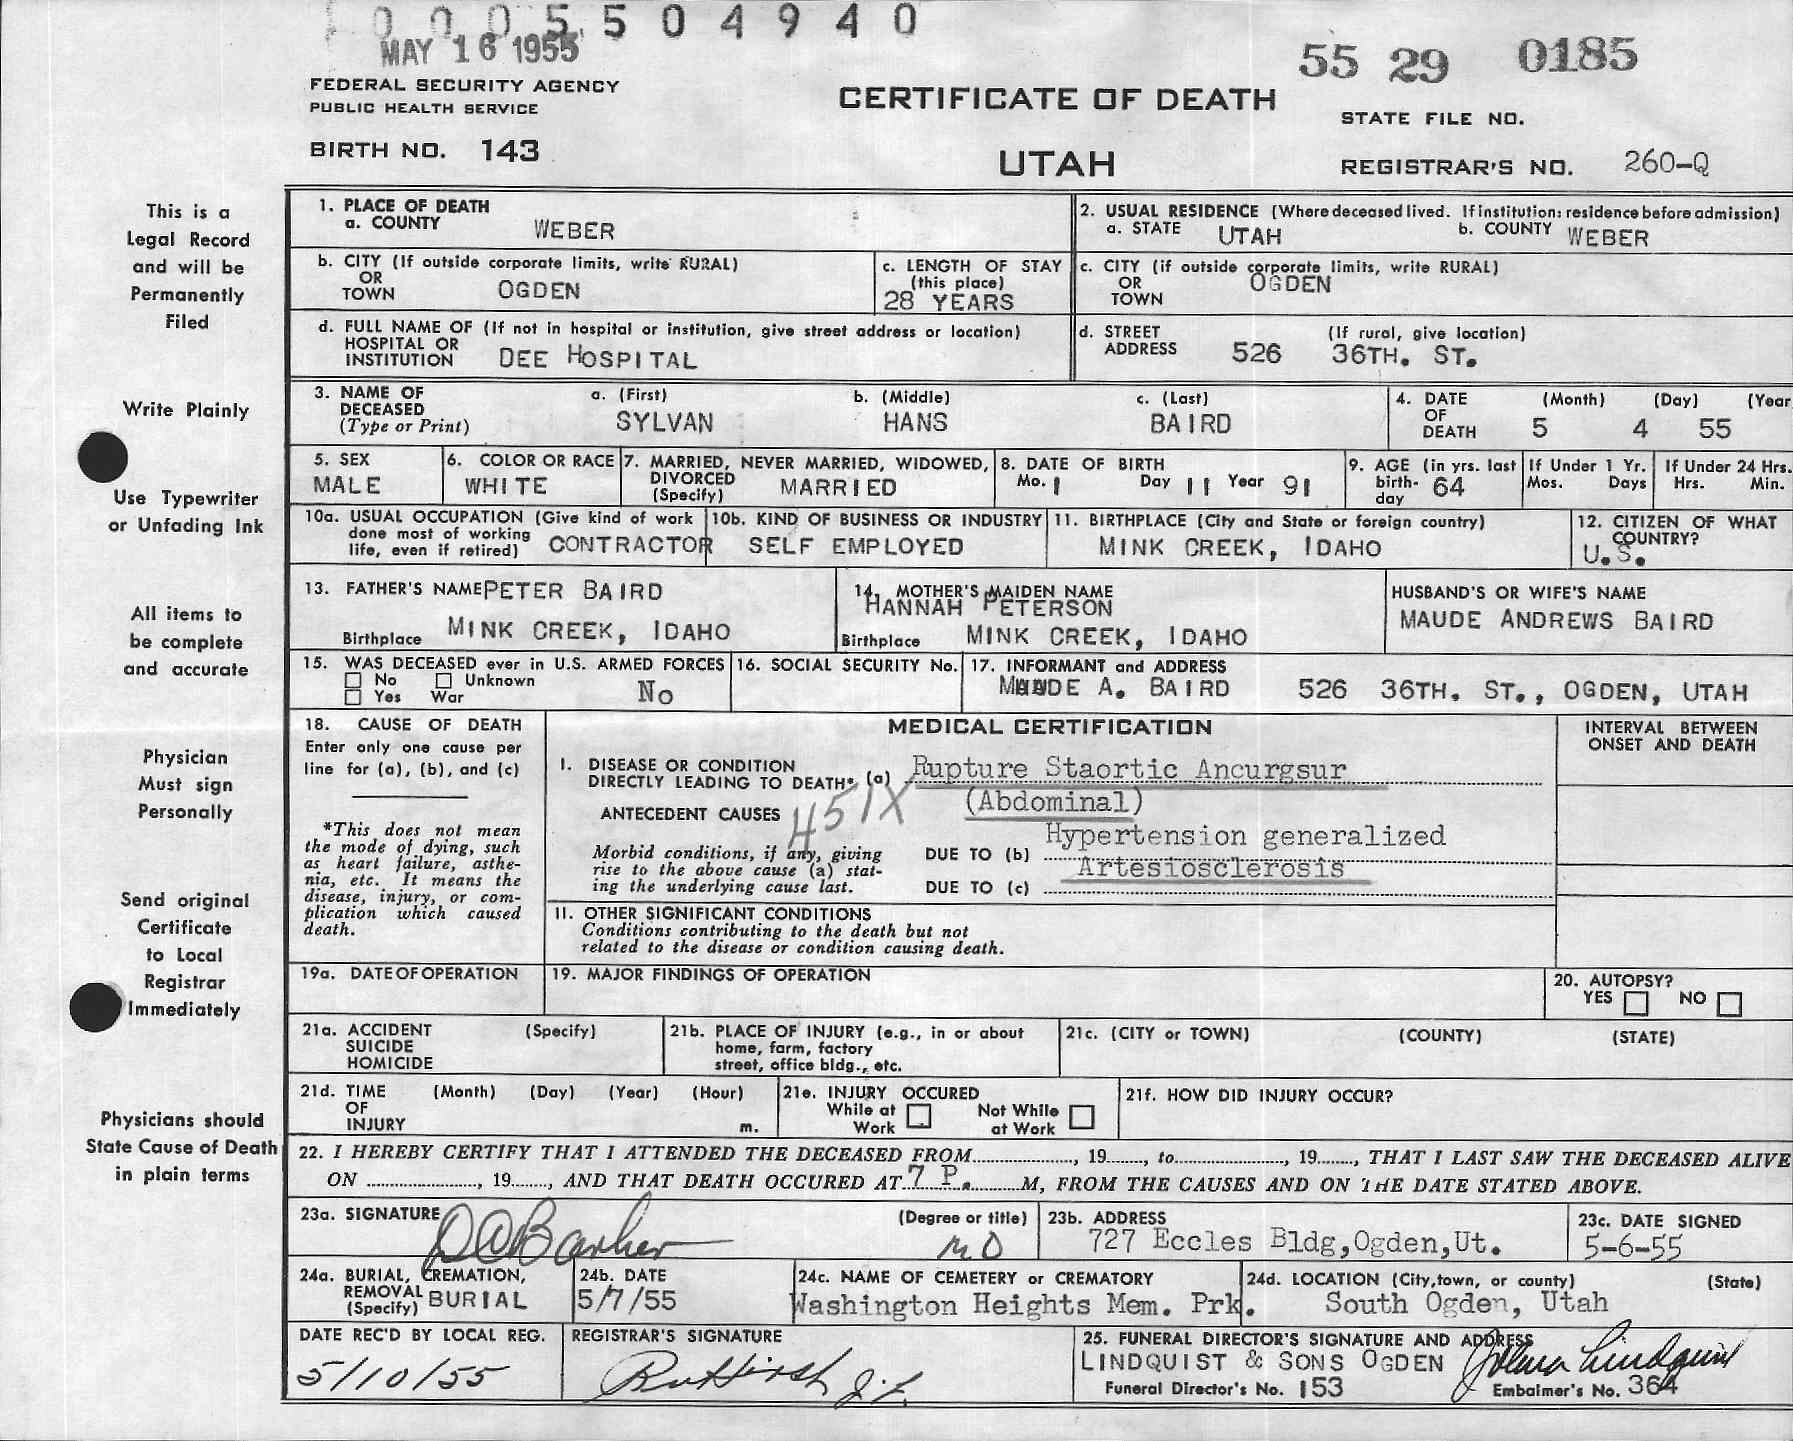 0005504940
MAY 16 1955
55 29 0185
FEDERAL SECURITY AGENCY
PUBLIC HEALTH SERVICE
CERTIFICATE OF DEATH
STATE FILE NO.
BIRTH NO. 143
UTAH
REGISTRAR'S NO. 260-Q
This is a
Legal Record
and will be
Permanently
Filed
Write Plainly
Use Typewriter
or Unfading Ink
All items to
be complete
and accurate
Physician
Must sign
Personally
Send original
Certificate
to Local
Registrar
Immediately
Physicians should
State Cause of Death
in plain terms
1. PLACE OF DEATH
a. COUNTY WEBER
2. USUAL RESIDENCE (Where deceased lived. If institution: residence before admission)
a. STATE UTAH b. COUNTY WEBER
b. CITY (If outside corporate limits, write RURAL)
OR
TOWN OGDEN
c. LENGTH OF STAY
(this place)
28 YEARS
c. CITY (if outside corporate limits, write RURAL)
OR
TOWN OGDEN
d. FULL NAME OF (If not in hospital or institution, give street address or location)
HOSPITAL OR
INSTITUTION DEE HOSPITAL
d. STREET (If rural, give location)
ADDRESS 526 36TH. ST.
3. NAME OF
DECEASED
(Type or Print)
a. (First) b. (Middle) c. (Last)
SYLVAN HANS BAIRD
4. DATE (Month) (Day) (Year
OF
DEATH 5 4 55
5. SEX
MALE
6. COLOR OR RACE
WHITE
7. MARRIED, NEVER MARRIED, WIDOWED,
DIVORCED
(Specify) MARRIED
8. DATE OF BIRTH
Mo. 1 Day 11 Year 91
9. AGE (in yrs. last
birth-
day 64
If Under 1 Yr.
Mos. Days
If Under 24 Hrs.
Hrs. Min.
10a. USUAL OCCUPATION (Give kind of work
done most of working
life, even if retired) CONTRACTOR
10b. KIND OF BUSINESS OR INDUSTRY
SELF EMPLOYED
11. BIRTHPLACE (City and State or foreign country)
MINK CREEK, IDAHO
12. CITIZEN OF WHAT
COUNTRY?
U.S.
13. FATHER'S NAME PETER BAIRD
Birthplace MINK CREEK, IDAHO
14. MOTHER'S MAIDEN NAME
HANNAH PETERSON
Birthplace MINK CREEK, IDAHO
HUSBAND'S OR WIFE'S NAME
MAUDE ANDREWS BAIRD
15. WAS DECEASED ever in U.S. ARMED FORCES
No Unknown
Yes War No
16. SOCIAL SECURITY No.
17. INFORMANT and ADDRESS
MAUDE A. BAIRD 526 36TH. ST., OGDEN, UTAH
18. CAUSE OF DEATH
Enter only one cause per
line for (a), (b), and (c)
*This does not mean
the mode of dying, such
as heart failure, asthe-
nia, etc. It means the
disease, injury, or com-
plication which caused
death.
MEDICAL CERTIFICATION
INTERVAL BETWEEN
ONSET AND DEATH
I. DISEASE OR CONDITION
DIRECTLY LEADING TO DEATH*, (a) Rupture Staortic Ancurgsur
(Abdominal)
ANTECEDENT CAUSES 451X
Morbid conditions, if any, giving
rise to the above cause (a) stat-
ing the underlying cause last.
DUE TO (b) Hypertension generalized
Artesiosclerosis
DUE TO (c)
II. OTHER SIGNIFICANT CONDITIONS
Conditions contributing to the death but not
related to the disease or condition causing death.
19a. DATE OF OPERATION
19. MAJOR FINDINGS OF OPERATION
20. AUTOPSY?
YES NO
21a. ACCIDENT (Specify)
SUICIDE
HOMICIDE
21b. PLACE OF INJURY (e.g., in or about
home, farm, factory
street, office bldg., etc.
21c. (CITY or TOWN) (COUNTY) (STATE)
21d. TIME (Month) (Day) (Year) (Hour)
OF
INJURY m.
21e. INJURY OCCURED
While at Work Not While at Work
21f. HOW DID INJURY OCCUR?
22. I HEREBY CERTIFY THAT I ATTENDED THE DECEASED FROM..............., 19......, to................, 19......, THAT I LAST SAW THE DECEASED ALIVE
ON ..............., 19......, AND THAT DEATH OCCURED AT 7 P. M, FROM THE CAUSES AND ON THE DATE STATED ABOVE.
23a. SIGNATURE (Degree or title)
D C Barker M D
23b. ADDRESS
727 Eccles Bldg,Ogden,Ut.
23c. DATE SIGNED
5-6-55
24a. BURIAL, CREMATION,
REMOVAL
(Specify) BURIAL
24b. DATE
5/7/55
24c. NAME OF CEMETERY or CREMATORY
Washington Heights Mem. Prk.
24d. LOCATION (City,town, or county) (State)
South Ogden, Utah
DATE REC'D BY LOCAL REG.
5/10/55
REGISTRAR'S SIGNATURE
25. FUNERAL DIRECTOR'S SIGNATURE AND ADDRESS
LINDQUIST & SONS OGDEN
Funeral Director's No. 153
Embalmer's No. 364